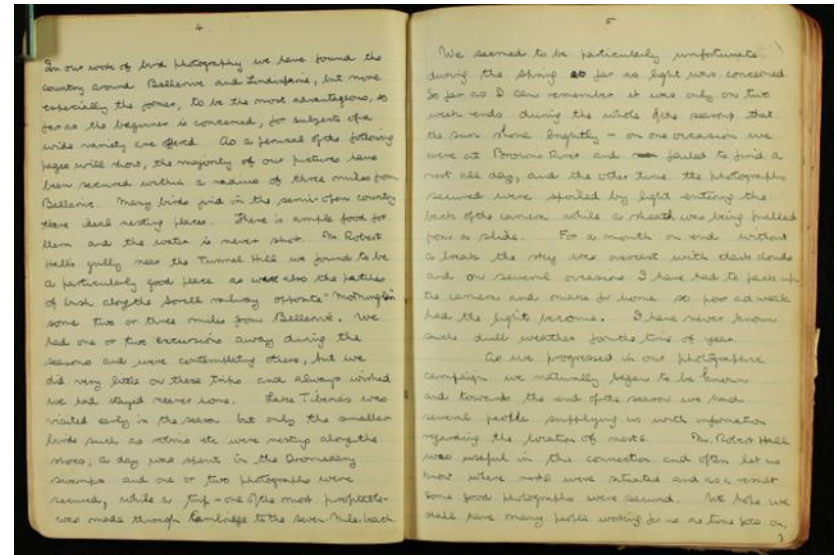 4
In our work of bird photography we have found the
country around Bellerive and Lindisfarne, but more
especially the former, to be the most advantageous, so
far as the beginner is concerned, for subjects of a
wide variety are offered. As a perusal of the following
pages will show, the majority of our pictures have
been secured within a radius of three miles from
Bellerive. Many birds find in the semi-open country
there ideal nesting places. There is ample food for
them and the water is never short. Mr. Robert
Hall's gully near the Tunnel Hill we found to be
a particularly good place as were also the patches
of bush along the Sorell railway opposite "Mornington"
some two or three miles from Bellerive. We
had one or two excursions away during the
season and were contemplating others, but we
did very little on these trips and always wished
we had stayed nearer home. Lake Tiberias was
visited early in the season but only the smaller
birds such as robins etc were nesting along the
shores, a day was spent in the Dromedary
swamps and one or two photographs were
secured, while a trip - one of the most profitable -
was made through Cambridge to the Seven Mile beach
5
We seemed to be particularly unfortunate
during the spring as far as light was concerned
So far as I can remember it was only on two
week ends during the whole of the season that
the sun shone brightly - on one occasion we
were at Browns River and failed to find a
nest all day, and the other time the photographs
secured were spoiled by light entering the
back of the camera while a sheath was being pulled
from a slide. For a month on end without
a break the sky was overcast with dark clouds
and on several occasions I have had to pack up
the camera and make for home so poor and weak
had the light become. I have never known
such dull weather for the time of year.
As we progressed in our photographic
campaign we naturally began to be known
and towards the end of the season we had
several people supplying us with information
regarding the location of nests. Mr. Robert Hall
was useful in this connection and often let us
know where nests were situated and as a result
some good photographs were secured. We hope we
shall have many people working for us as time goes on.
3